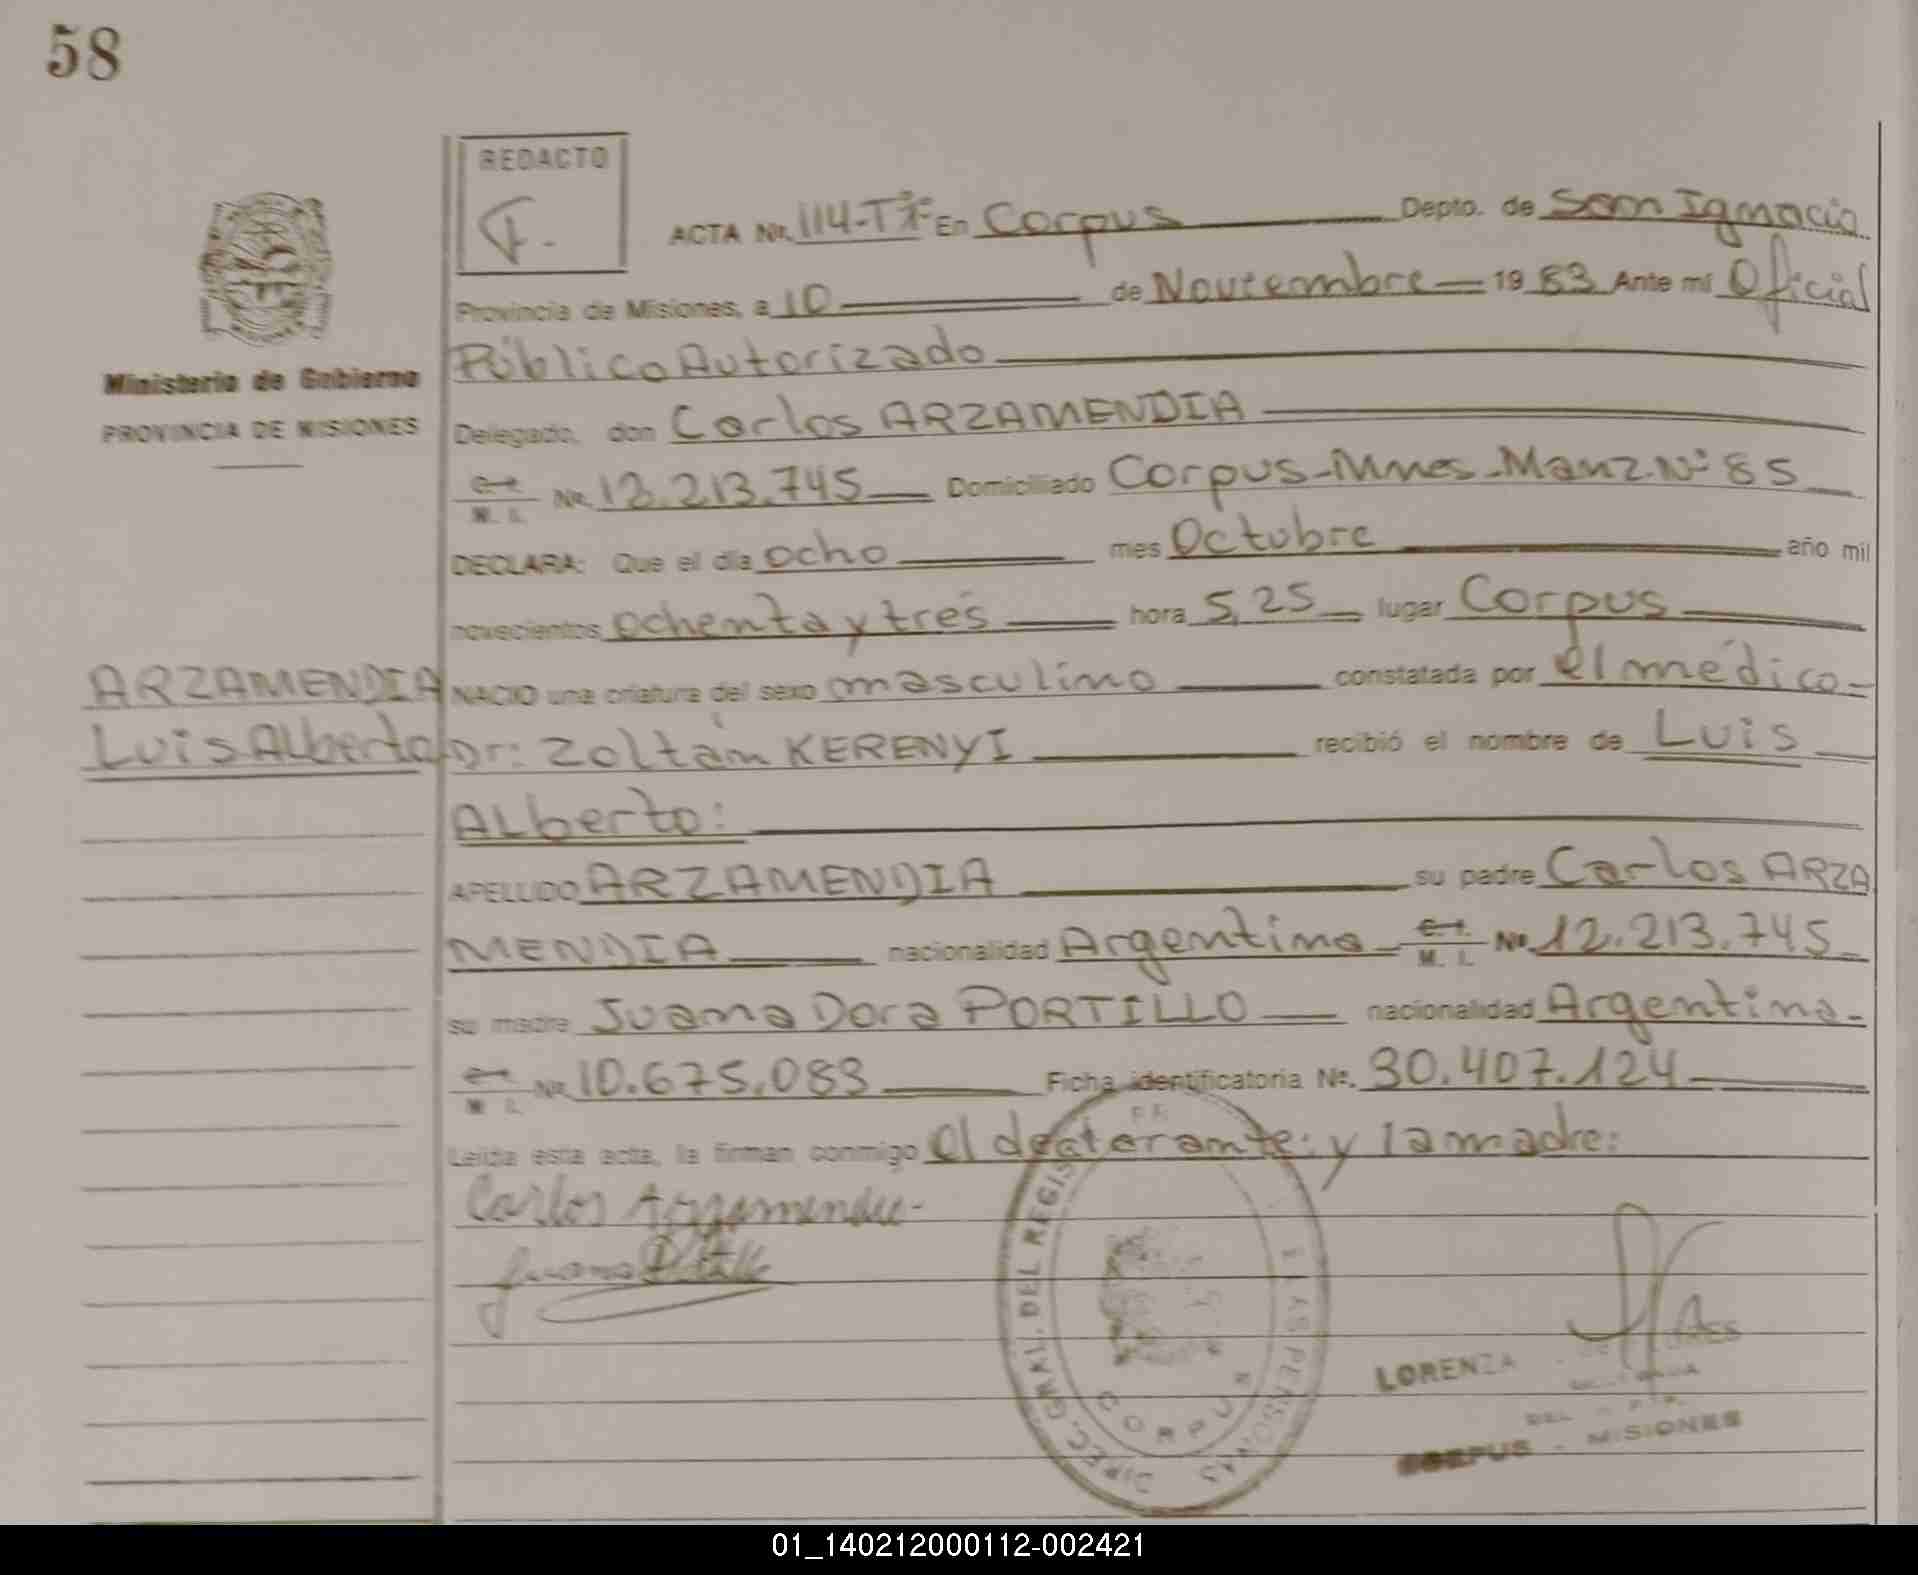 58
REDACTO
F.
ACTA Nr. 114-Tº Iº En Corpus Depto. de San Ignacio
Provincia de Misiones, a 10 de Noviembre 19 83 Ante mí Oficial
Público Autorizado
Ministerio de Gobierno
PROVINCIA DE MISIONES
Delegado, don Carlos ARZAMENDIA
C.I. M. I. Nr. 12.213.745 Domiciliado Corpus-Mnes-Manz.Nº 85
DECLARA: Que el día ocho mes Octubre año mil
novecientos ochenta y tres hora 5,25 lugar Corpus
ARZAMENDIA
Luis Alberto
NACIO una criatura del sexo masculino constatada por el médico-
Dr: Zoltán KERENYI recibió el nombre de Luis
Alberto:
APELLIDO ARZAMENDIA su padre Carlos ARZA
MENDIA nacionalidad Argentina C.I. M. I. Nº 12.213.745
su madre Juana Dora PORTILLO nacionalidad Argentina-
C.I. M. I. Nr. 10.675.083 Ficha identificatoria Nº. 30.407.124
Leída esta acta, la firman conmigo el declarante: y la madre:
Carlos Arzamendia-
Juana Portillo
DIREC. GRAL. DEL REGIS DE LAS PERSONAS
CORPUS
LORENZA
DEL
CORPUS - MISIONES
01_140212000112-002421